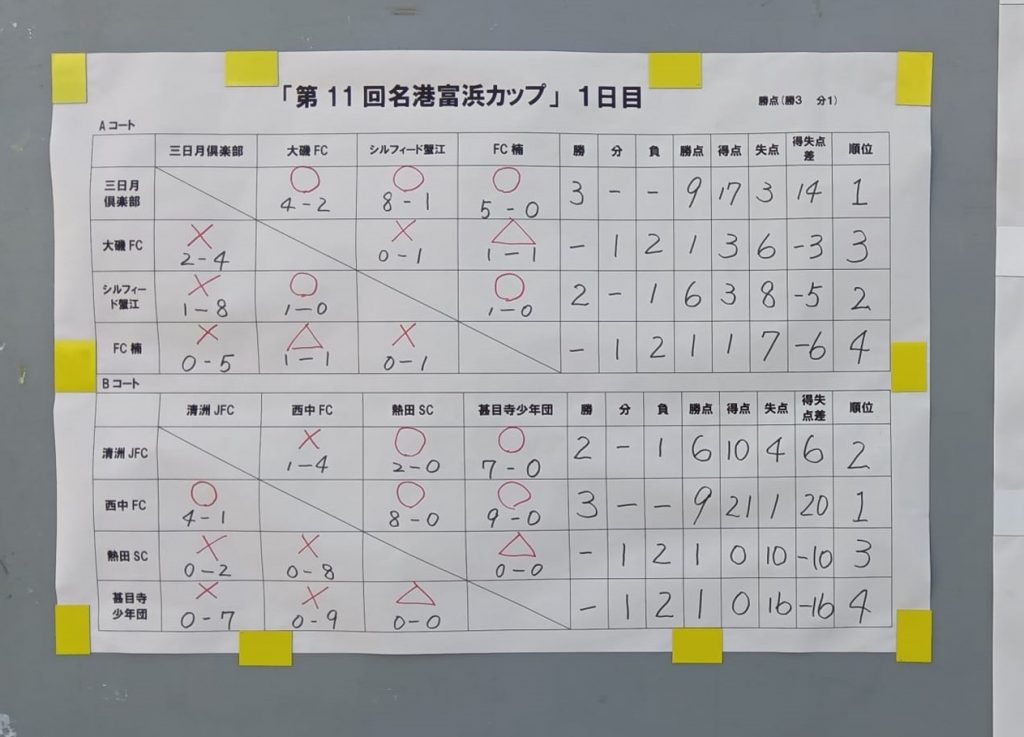 「第11回名港富浜カップ」 1日目
勝点(勝3 分1)
Aコート
三日月倶楽部 大磯FC シルフィード蟹江 FC楠 勝 分 負 勝点 得点 失点 得失点差 順位
三日月倶楽部 ○ 4-2 ○ 8-1 ○ 5-0 3 - - 9 17 3 14 1
大磯FC × 2-4 × 0-1 △ 1-1 - 1 2 1 3 6 -3 3
シルフィード蟹江 × 1-8 ○ 1-0 ○ 1-0 2 - 1 6 3 8 -5 2
FC楠 × 0-5 △ 1-1 × 0-1 - 1 2 1 1 7 -6 4
Bコート
清洲JFC 西中FC 熱田SC 甚目寺少年団 勝 分 負 勝点 得点 失点 得失点差 順位
清洲JFC × 1-4 ○ 2-0 ○ 7-0 2 - 1 6 10 4 6 2
西中FC ○ 4-1 ○ 8-0 ○ 9-0 3 - - 9 21 1 20 1
熱田SC × 0-2 × 0-8 △ 0-0 - 1 2 1 0 10 -10 3
甚目寺少年団 × 0-7 × 0-9 △ 0-0 - 1 2 1 0 16 -16 4